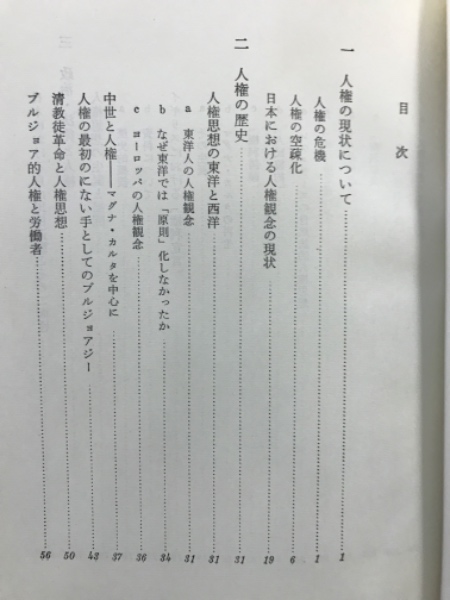 目次
一 人権の現状について……1
人権の危機……1
人権の空疎化……6
日本における人権観念の現状……19
二 人権の歴史……31
人権思想の東洋と西洋……31
a 東洋人の人権観念……31
b なぜ東洋では「原則」化しなかったか……34
c ヨーロッパの人権観念……36
中世と人権――マグナ・カルタを中心に……37
人権の最初のにない手としてのブルジョアジー……43
清教徒革命と人権思想……50
ブルジョア的人権と労働者……56